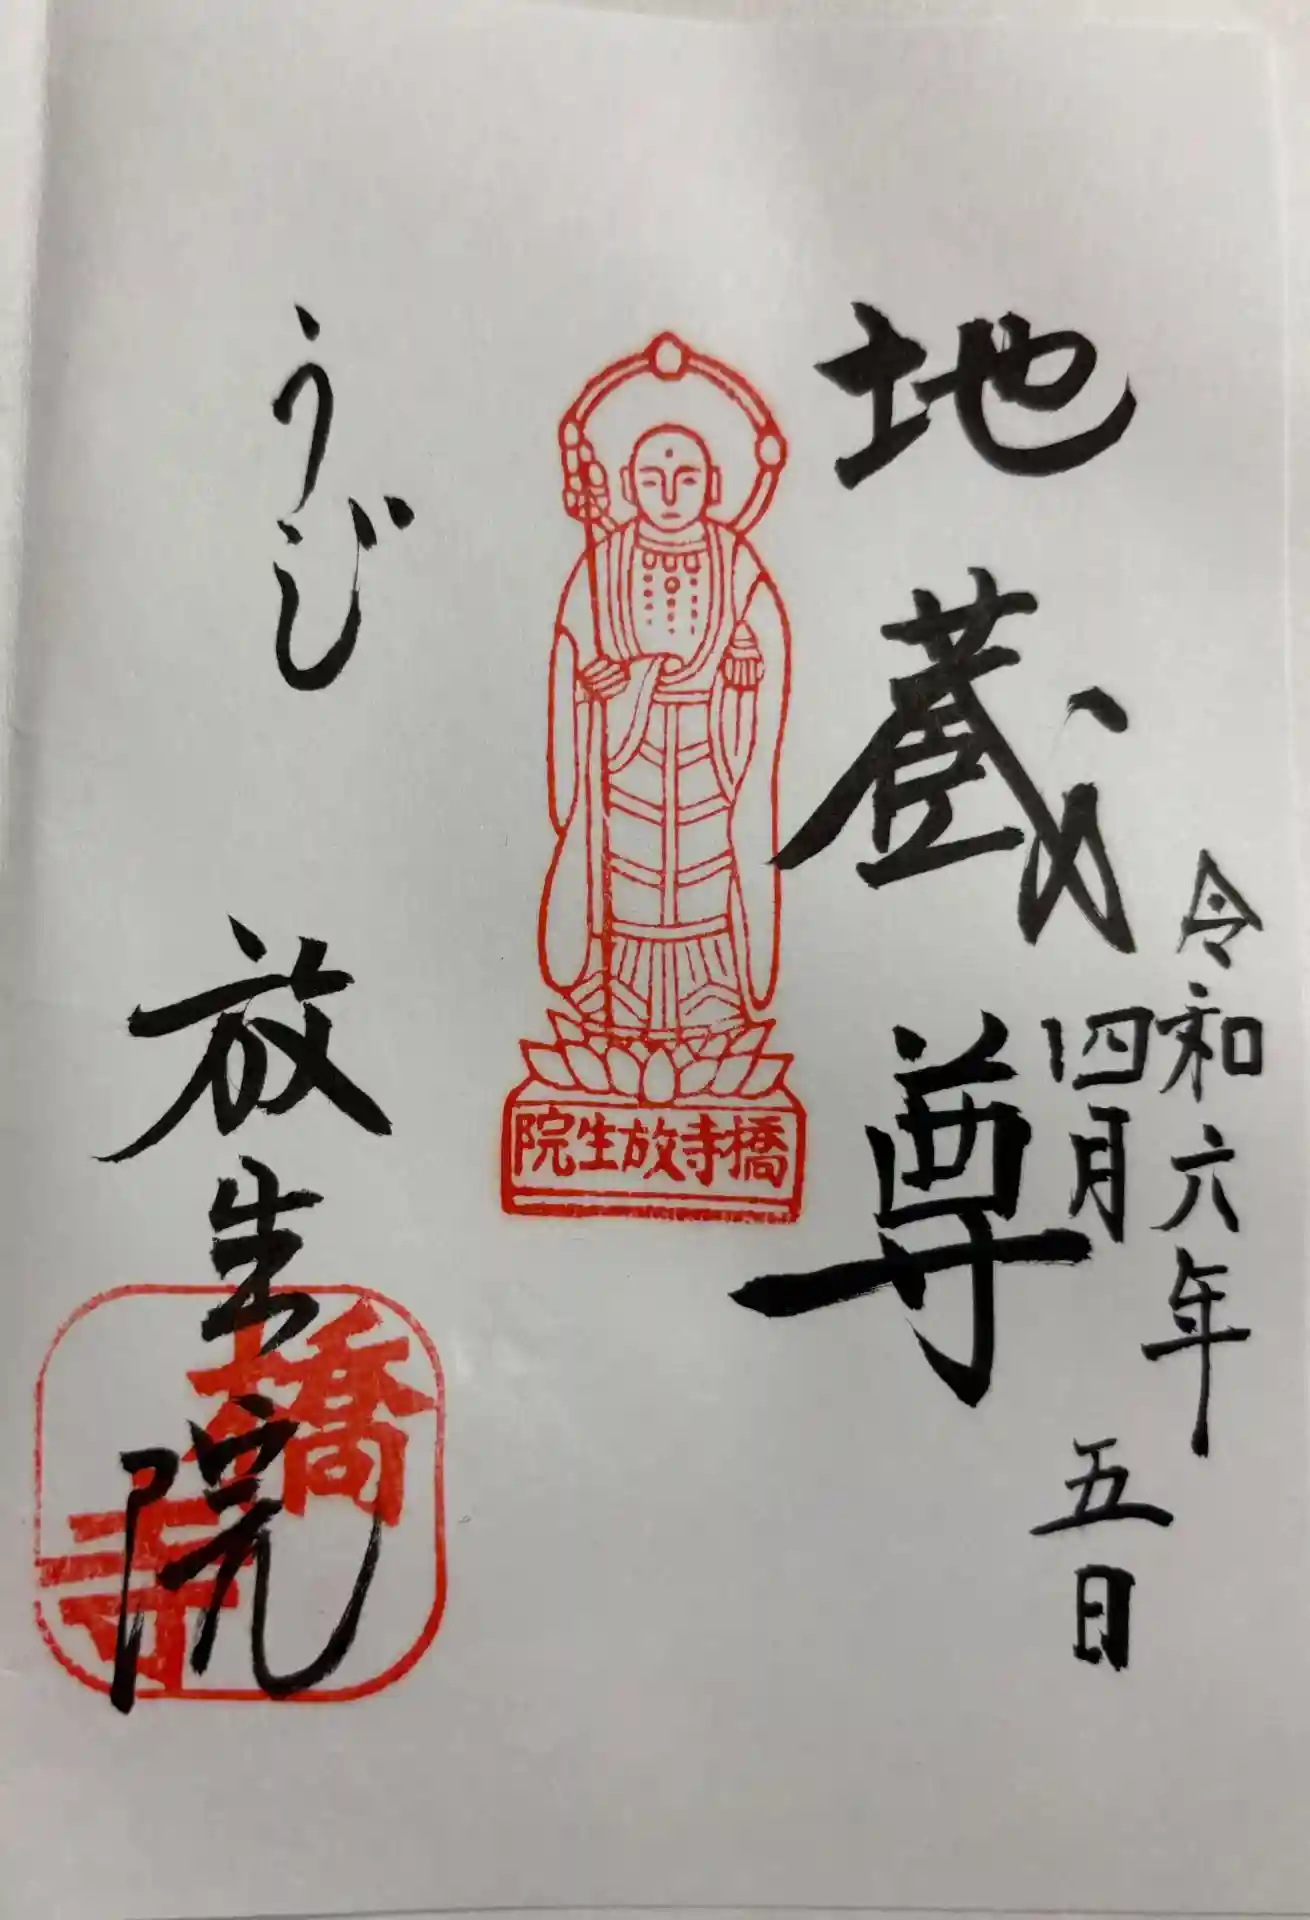 令和六年
四月五日
地蔵尊
橋寺放生院
うじ 放生院
橋寺